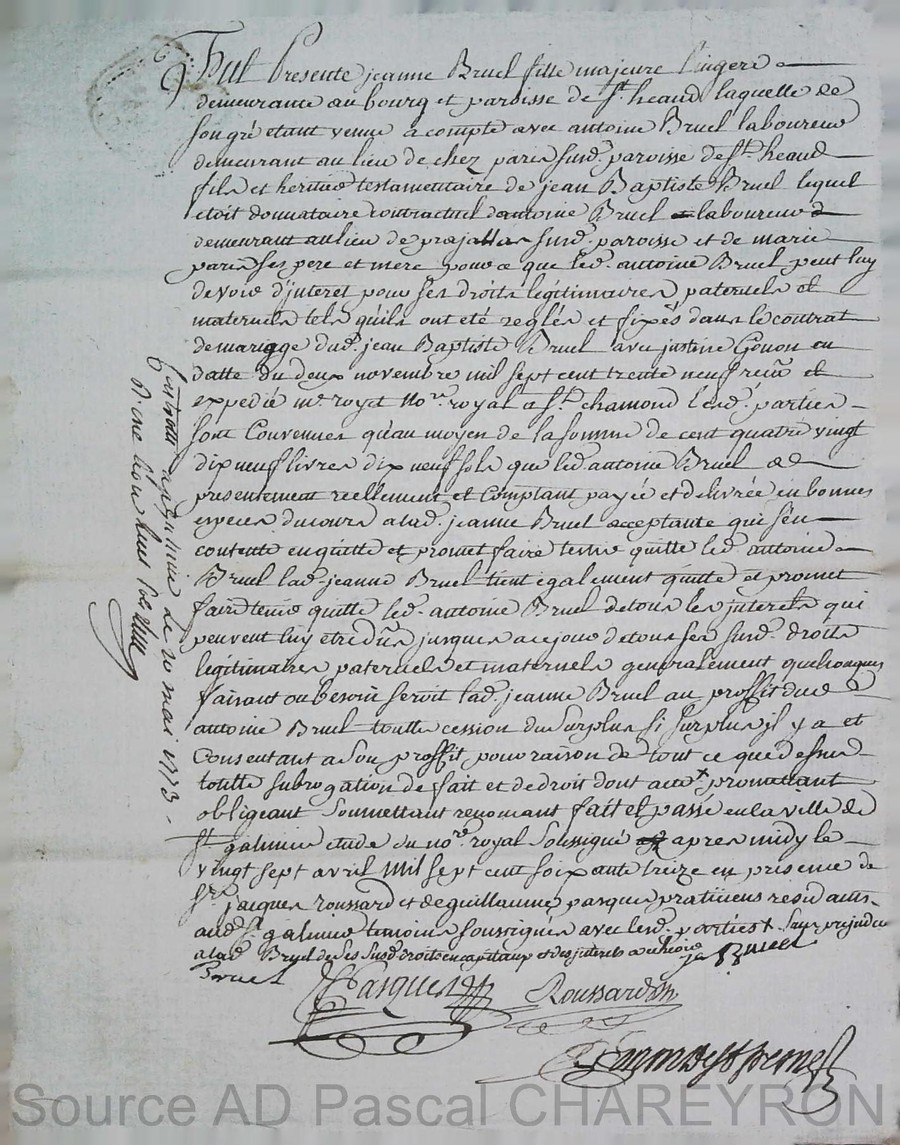 Fut Presente jeanne Bruel fille majeure lingere
demeurante au bourg et paroisse de St. heand laquelle de
son gré etant venue a compte avec antoine Bruel laboureur
demeurant au lieu de chez paris susd. paroisse de St. heand
fils et heritier testamentaire de jean Baptiste Bruel lequel
etoit donnataire contractuel dantoine Bruel laboureur
demeurant au lieu de susd. paroisse et de marie
paris ses pere et mere pour ce que led. antoine Bruel peut luy
devoir d'interet pour ses droits legitimaires paternels et
maternels tels quils ont été reglés et fixés dans le contrat
de mariage dud. jean Baptiste Bruel avec justine Gonon en
datte du deux novembre mil sept cent trente neuf receu et
expedié me. royet nore. royal a St. chamond lesd. parties
sont Convenues qu'au moyen de la somme de cent quatre vingt
dix neuf livres dix neuf sols que led. antoine Bruel a
presentement reellement et Comptant payée et delivrée en bonnes
especes du cours a lad. jeanne Bruel acceptante qui s'en
contente en quitte et promet faire tenir quitte led. antoine
Bruel lad. jeanne Bruel tient egalement quitte et promet
faire tenir quitte led. antoine Bruel de tous les interets qui
peuvent luy etre dus jusques a ce jour de tous ses susd. droits
legitimaires paternels et maternels generalement quelconques
faisant ou besoin seroit lad. jeanne Bruel au proffit dud.
antoine Bruel toutte cession du surplus si surplus il y a et
Consentant a son proffit pour raison de tout ce que dessus
toutte subrogation de fait et de droit dont acte promettant
obligeant Soumettant renonçant fait et passé en la ville de
St. galmier etude du nore. royal Soussigné apres midy le
vingt sept avril mil sept cent soixante treize en presence de
sr. jacques roussard et de guillaume pasquier praticiens residants
aud. St. galmier temoins soussignés avec led. parties + Sans prejudice
a lad. Bruel de ses susd. droits en capitaux et des interets a echeoir
je Bruel
Bruel
Pasquier
Roussard
Controllé a St galmier le 10 mai 1773